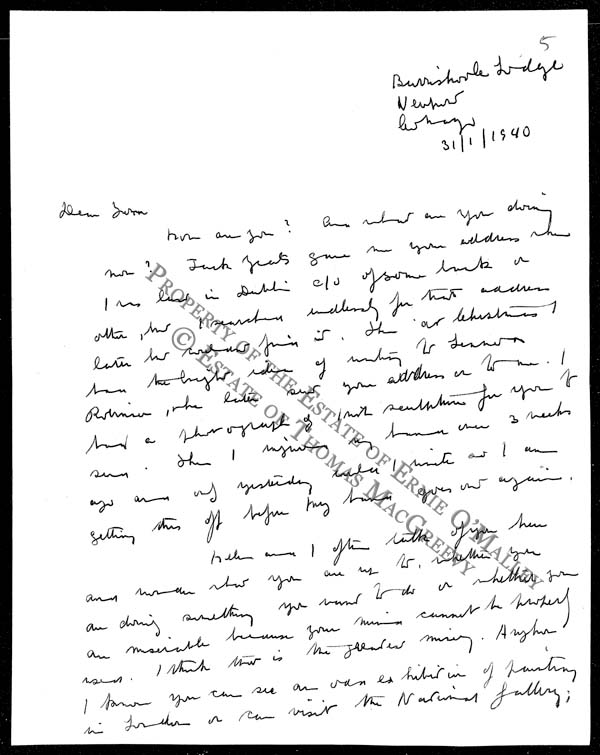 5
Burrishoole Lodge
Newport
Co Mayo
31/1/1940
Dear Tom
How are you? And what are you doing
now? Jack Yeats gave me your address when
I was last in Dublin c/o of some bank or
other, but I searched endlessly for that address
later but could find it. Then at Christmas I
had the bright idea of writing to Lennox
Robinson, who later sent your address on to me. I
had a photograph of sculpture for you to
send. Then I injured my hand over 3 weeks
ago and only yesterday could I write so I am
getting this off before my hand goes out again.
Helen and I often talk of you here
and wonder what you are up to, whether you
are doing something you want to do or whether you
are miserable because your mind cannot be properly
used. I think that is the greatest misery. Anyhow
I know you can see an odd exhibition of painting
in London or can visit the National Gallery;
Property of the Estate of Ernie O'Malley
© Estate of Thomas MacGreevy